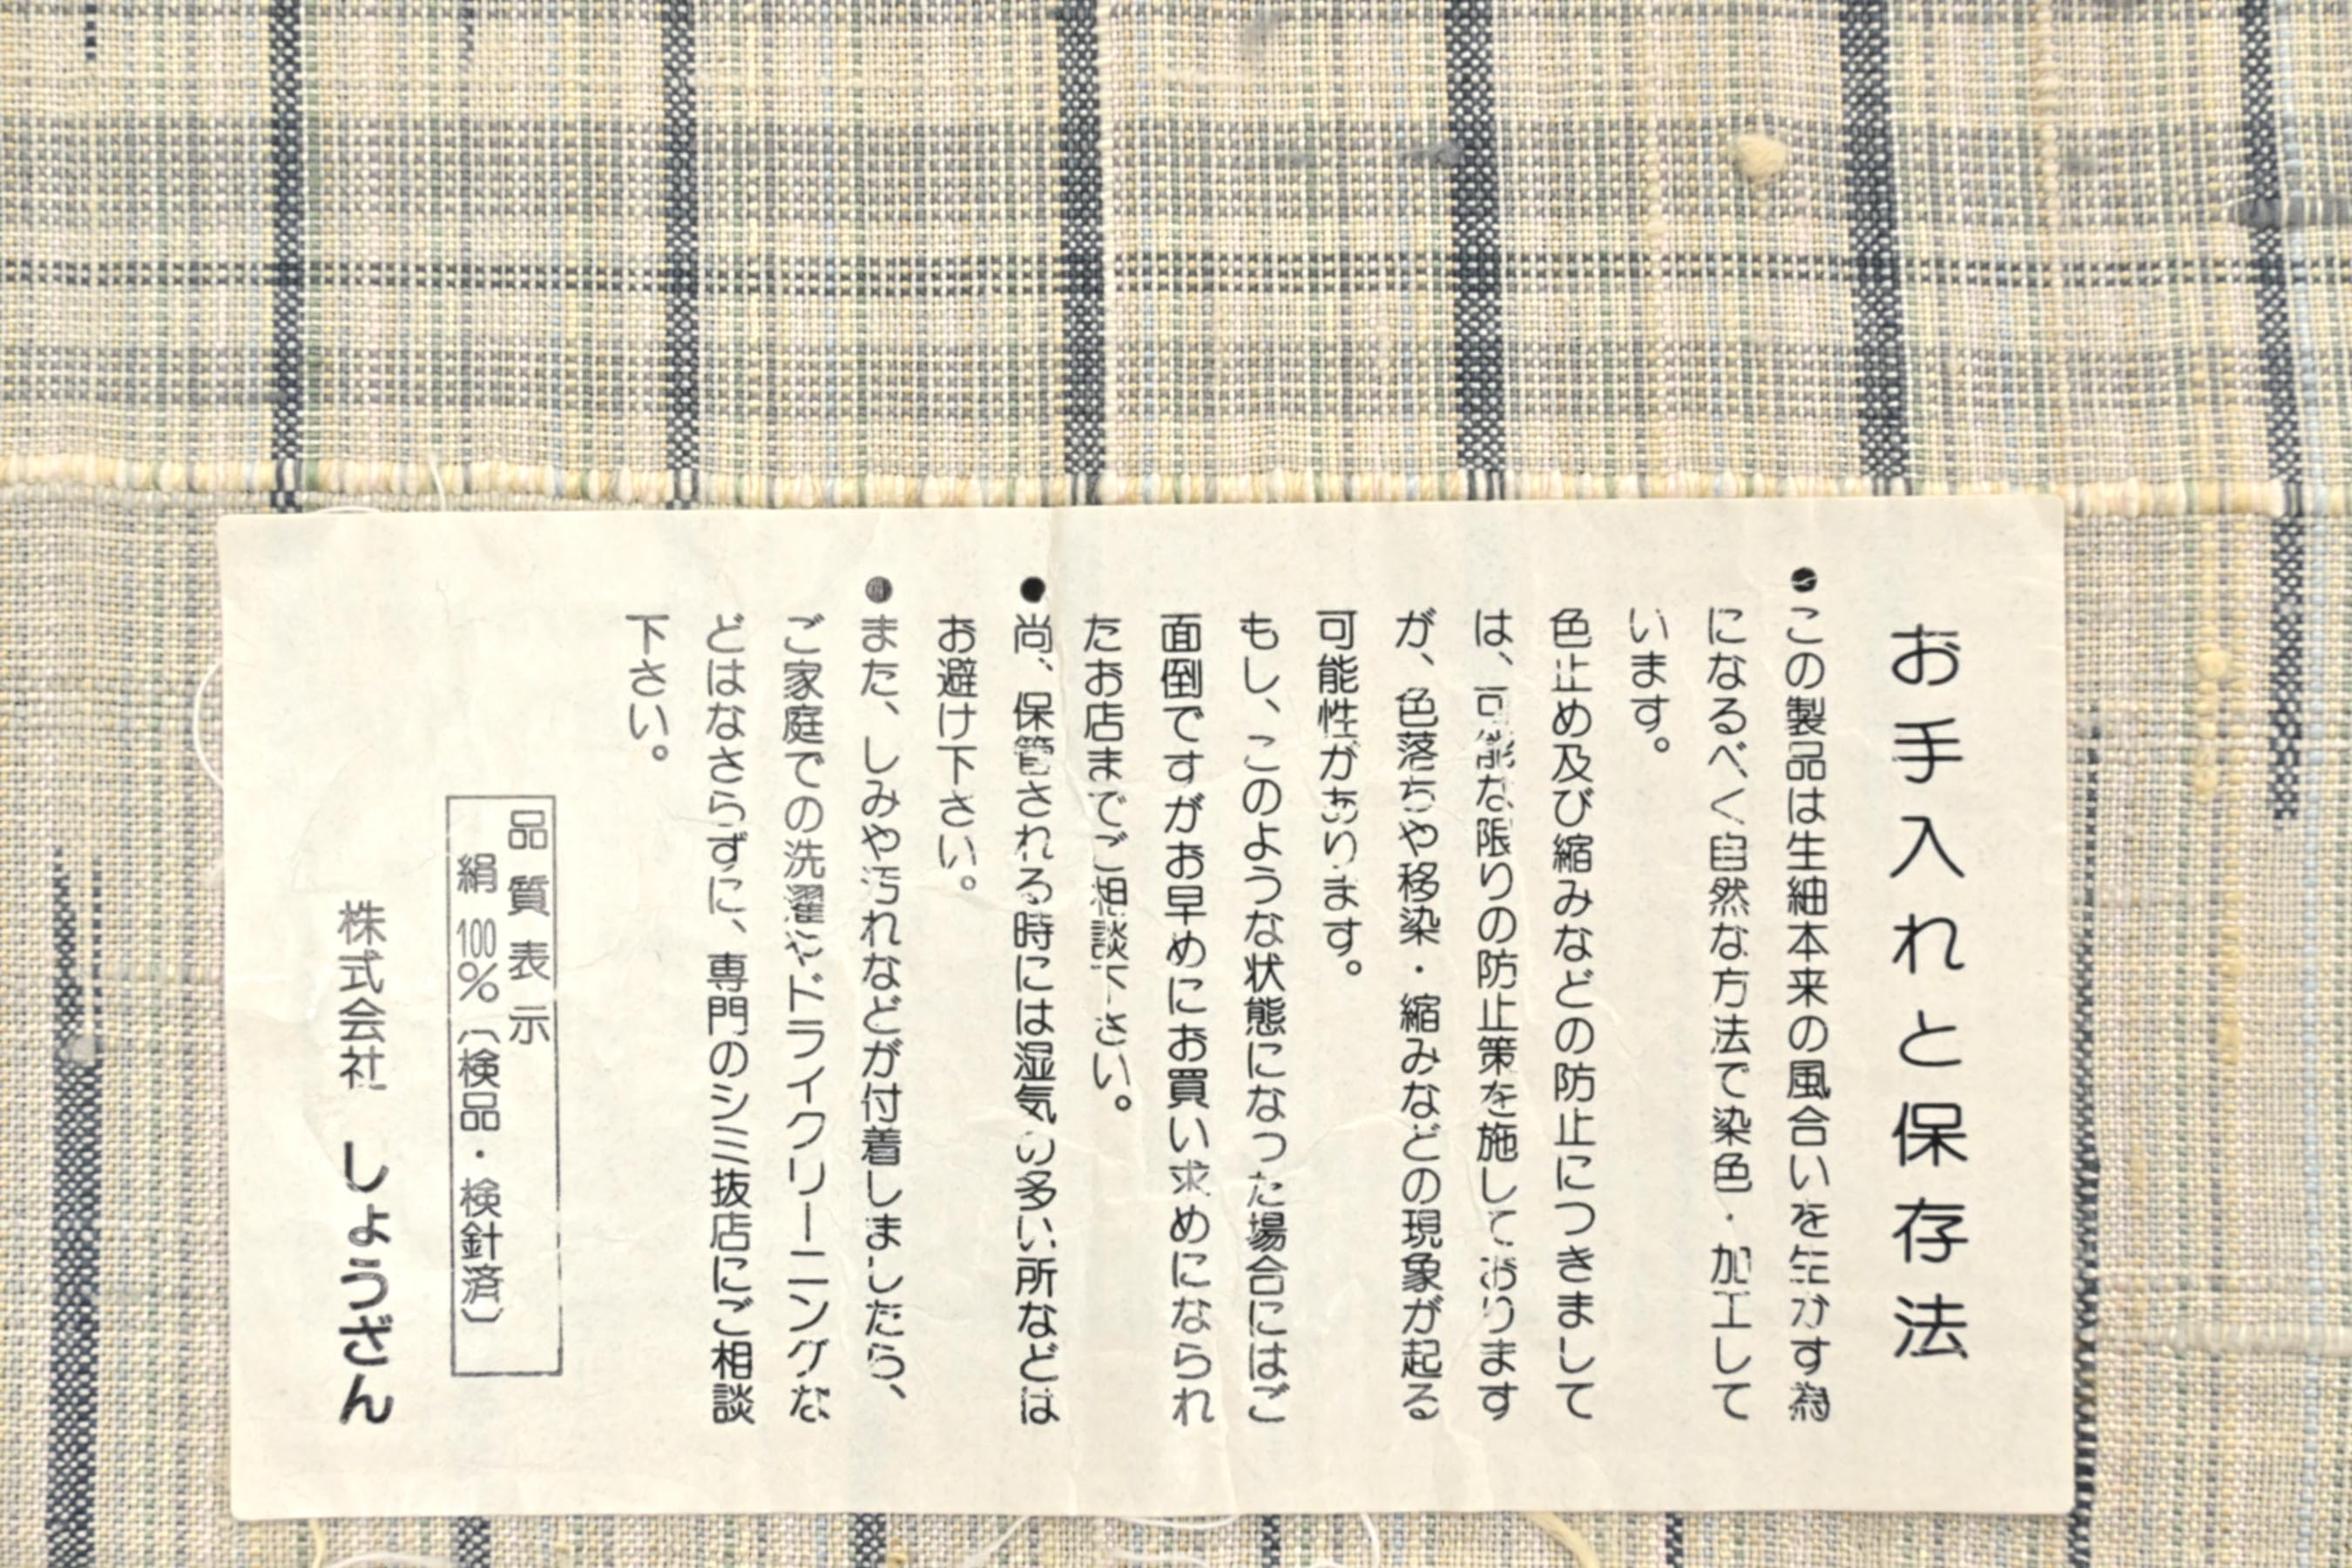 お手入れと保存法
●この製品は生紬本来の風合いを生かす為
になるべく自然な方法で染色・加工して
います。
色止め及び縮みなどの防止につきまして
は、可能な限りの防止策を施しております
が、色落ちや移染・縮みなどの現象が起る
可能性があります。
もし、このような状態になった場合にはご
面倒ですがお早めにお買い求めになられ
たお店までご相談下さい。
●尚、保管される時には湿気の多い所などは
お避け下さい。
●また、しみや汚れなどが付着しましたら、
ご家庭での洗濯やドライクリーニングな
どはなさらずに、専門のシミ抜店にご相談
下さい。
品質表示
絹100%〔検品・検針済〕
株式会社 しょうざん